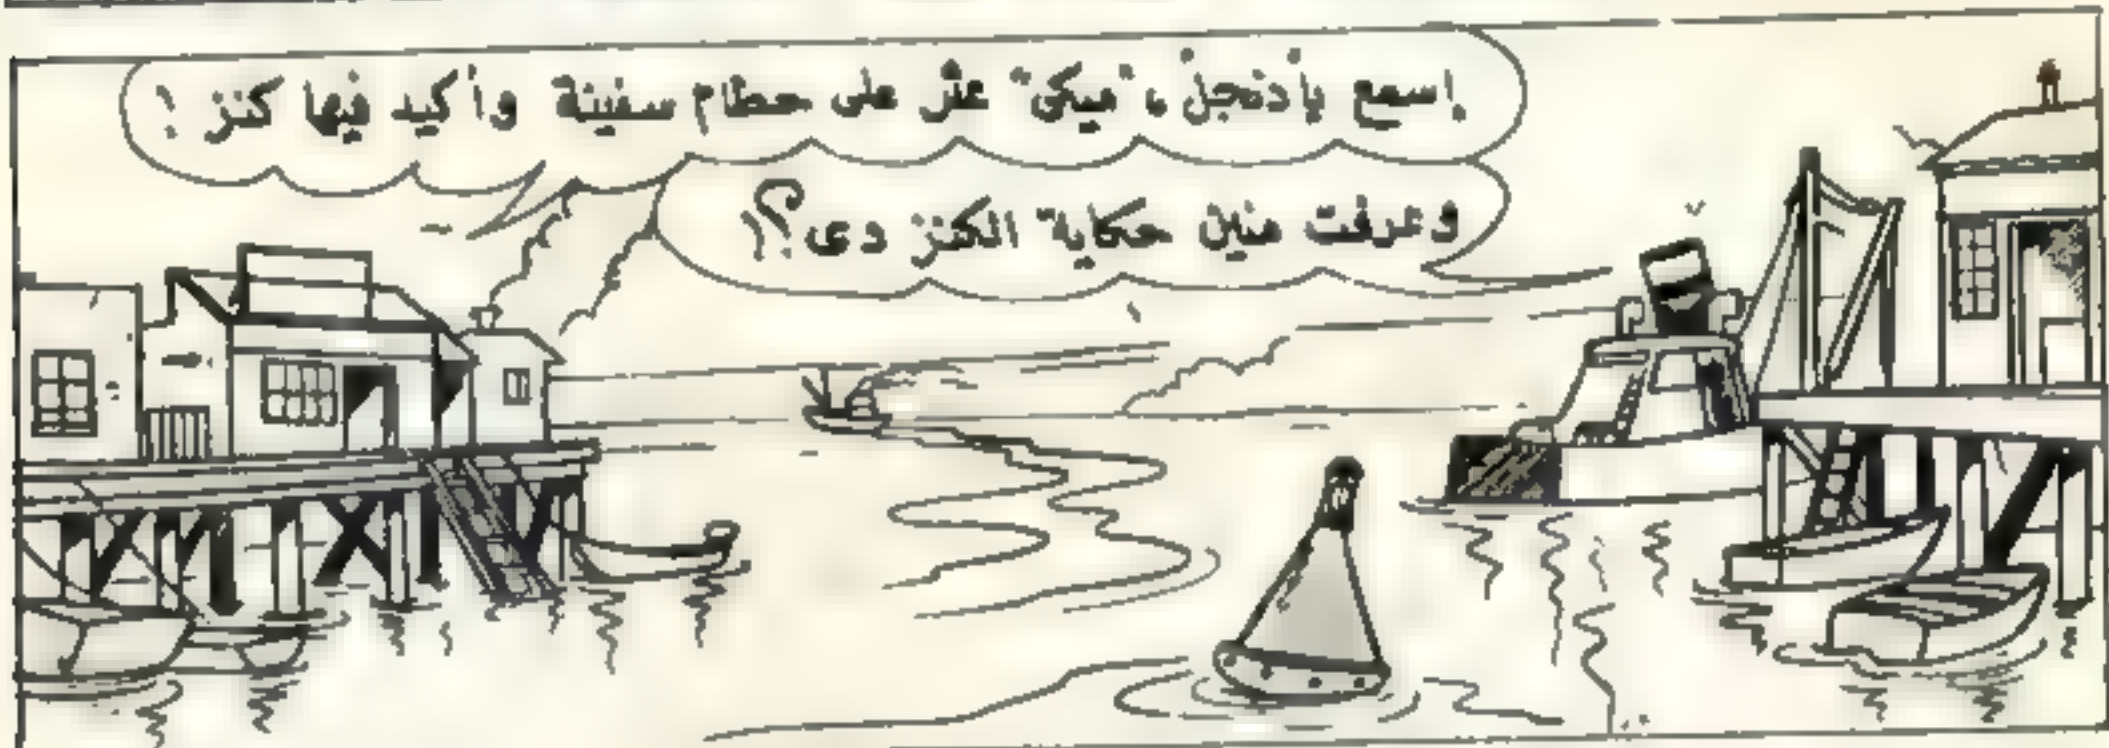 إسمع يا دنجل، "ميكى" عثر على حطام سفينة وأكيد فيها كنز!
وعرفت منين حكاية الكنز دى؟!